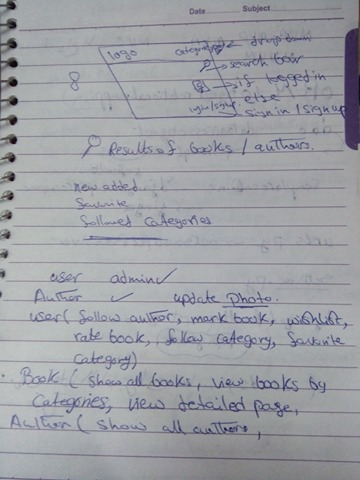 Date Subject
logo categories drop down
search bar
8 if logged in
login/signup else
sign in / sign up
Results of books / authors.
new added
favorite
followed Categories
user admin ✓
Author ✓ update photo.
user( follow author, mark book, wishlist,
rate book, follow category, favorite
category)
• Book ( show all books, view books by
Categories, view detailed page,
Author ( show all authors,